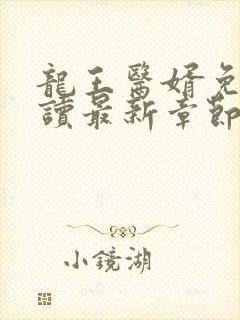 龍王醫婿免
讀最新章節
小鏡湖